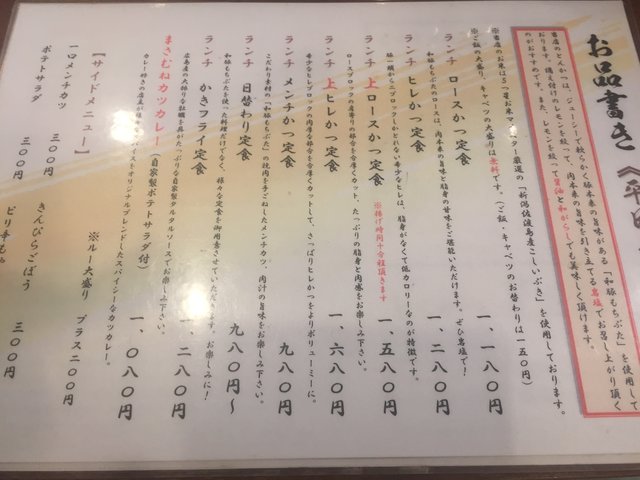 お品書き
当店のとんかつは、ジューシーで軟らかく豚本来の旨味がある「和豚もちぶた」を使用して
おります。備え付けのレモンを絞って、肉本来の旨味を引き立てる岩塩でお召し上がり頂く
のがおすすめです。また、レモンを絞って醤油と和がらしでも美味しく頂けます。
※当店のお米は5つ星お米マイスター厳選の「新潟佐渡島産こしいぶき」を使用しております。
※ご飯の大盛り、キャベツの大盛りは無料です。(ご飯・キャベツのお替わりは一五〇円)
ランチ ロースかつ定食 一、一八〇円
和豚もちぶたのロースは、肉本来の旨味と脂身の甘味をご堪能いただけます。ぜひ岩塩で!
ランチ ヒレかつ定食 一、二八〇円
豚一頭から二ブロックしかとれない希少なヒレは、脂身がなくて低カロリーなのが特徴です。
ランチ 上ロースかつ定食 ※揚げ時間十分程頂きます 一、五八〇円
ロースブロックの真寄りの部分を厚くカット、たっぷりの脂身と肉感をお楽しみ下さい。
ランチ 上ヒレかつ定食 一、六八〇円
希少なヒレブロックの中厚な部分を厚くカットして、さっぱりヒレかつをよりボリューミーに。
ランチ メンチかつ定食 九八〇円
こだわり素材の「和豚もちぶた」の粗肉を手ごねしたメンチカツ 肉汁の旨味をお楽しみ下さい。
ランチ 日替わり定食 九八〇円~
和豚もちぶたを使った料理だけでなく、様々な定食を御用意させていただきます。お楽しみに!
ランチ かきフライ定食 一、二八〇円
広島産の大振りな牡蠣を具がたっぷりな自家製タルタルソースでお楽しみ下さい。
まさむねカツカレー(自家製ポテトサラダ付) 一、〇八〇円
※ルー大盛り プラス二〇〇円
【サイドメニュー】
一口メンチカツ 三〇〇円
きんぴらごぼう 三〇〇円
ポテトサラダ 三〇〇円